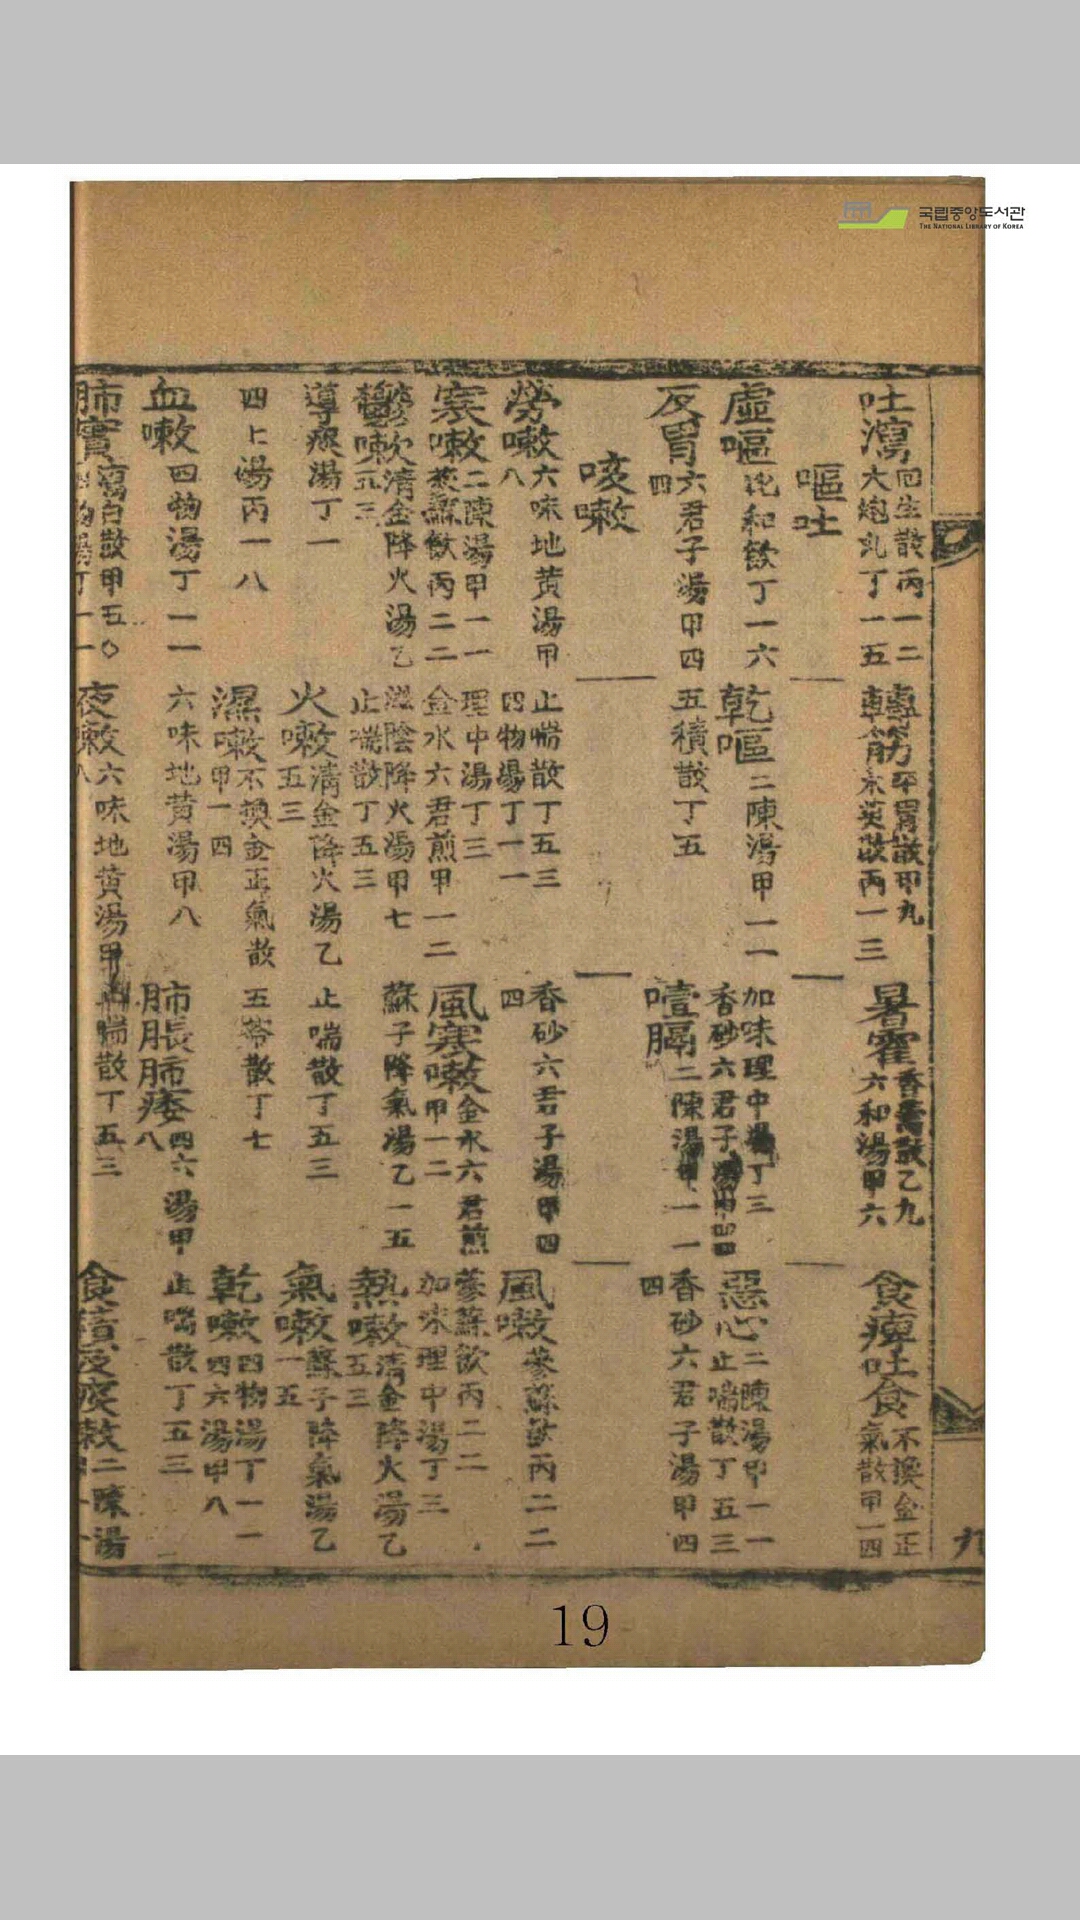 국립중앙도서관
THE NATIONAL LIBRARY OF KOREA
吐瀉 回生散丙一二 大炮丸丁一五
轉筋 平胃散甲九 丙一三
暑霍 香薷散乙九 六和湯甲六
食痺吐食 不換金正氣散甲一四
嘔吐
虛嘔 比和飮丁一六
乾嘔 二陳湯甲一一
加味理中湯丁三 香砂六君子湯甲四
惡心 二陳湯甲一一 止喘散丁五三
反胃 六君子湯甲四四
五積散丁五
噎膈 二陳湯甲一一
香砂六君子湯甲四四
咳嗽
勞嗽 六味地黃湯甲八
止喘散丁五三 四物湯丁一一
香砂六君子湯甲四四
風嗽 蔘蘇飮丙二二
寒嗽 二陳湯甲一一 蔘蘇飮丙二二
理中湯丁三 金水六君煎甲一二
風寒嗽 金水六君煎甲一二
蔘蘇飮丙二二 加味理中湯丁三
鬱嗽 清金降火湯乙五三
滋陰降火湯甲七 止喘散丁五三
蘇子降氣湯乙一五
熱嗽 清金降火湯乙五三
導痰湯丁一
火嗽 清金降火湯乙五三
止喘散丁五三
氣嗽 蘇子降氣湯乙一五
四七湯丙一八
濕嗽 不換金正氣散甲一四
五苓散丁七
乾嗽 四物湯丁一一 四六湯甲八
血嗽 四物湯丁一一
六味地黃湯甲八
肺脹肺痿 四六湯甲八
止喘散丁五三
肺實 瀉白散甲五〇 四物湯丁一一
夜嗽 六味地黃湯甲八
止喘散丁五三
食積及痰嗽 二陳湯
九
19